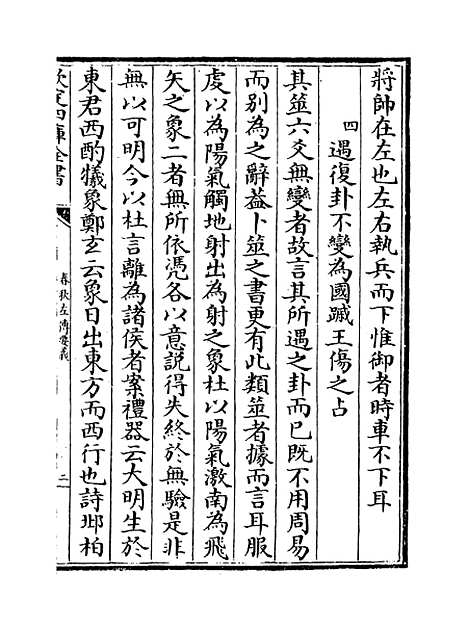 將帥在左也左右執兵而下惟御者時車不下耳
四　遇復卦不變為國蹙王傷之占
其筮六爻無變者故言其所遇之卦而已既不用周易
而别為之辭蓋卜筮之書更有此類筮者據而言耳服
虔以為陽氣觸地射出為射之象杜以陽氣激南為飛
矢之象二者無所依憑各以意說得失終於無驗是非
無以可明今以杜言離為諸侯者案禮器云大明生於
東君西酌犧象鄭玄云象日出東方而西行也詩邶柏
欽定四庫全書
春秋左傳要義
三